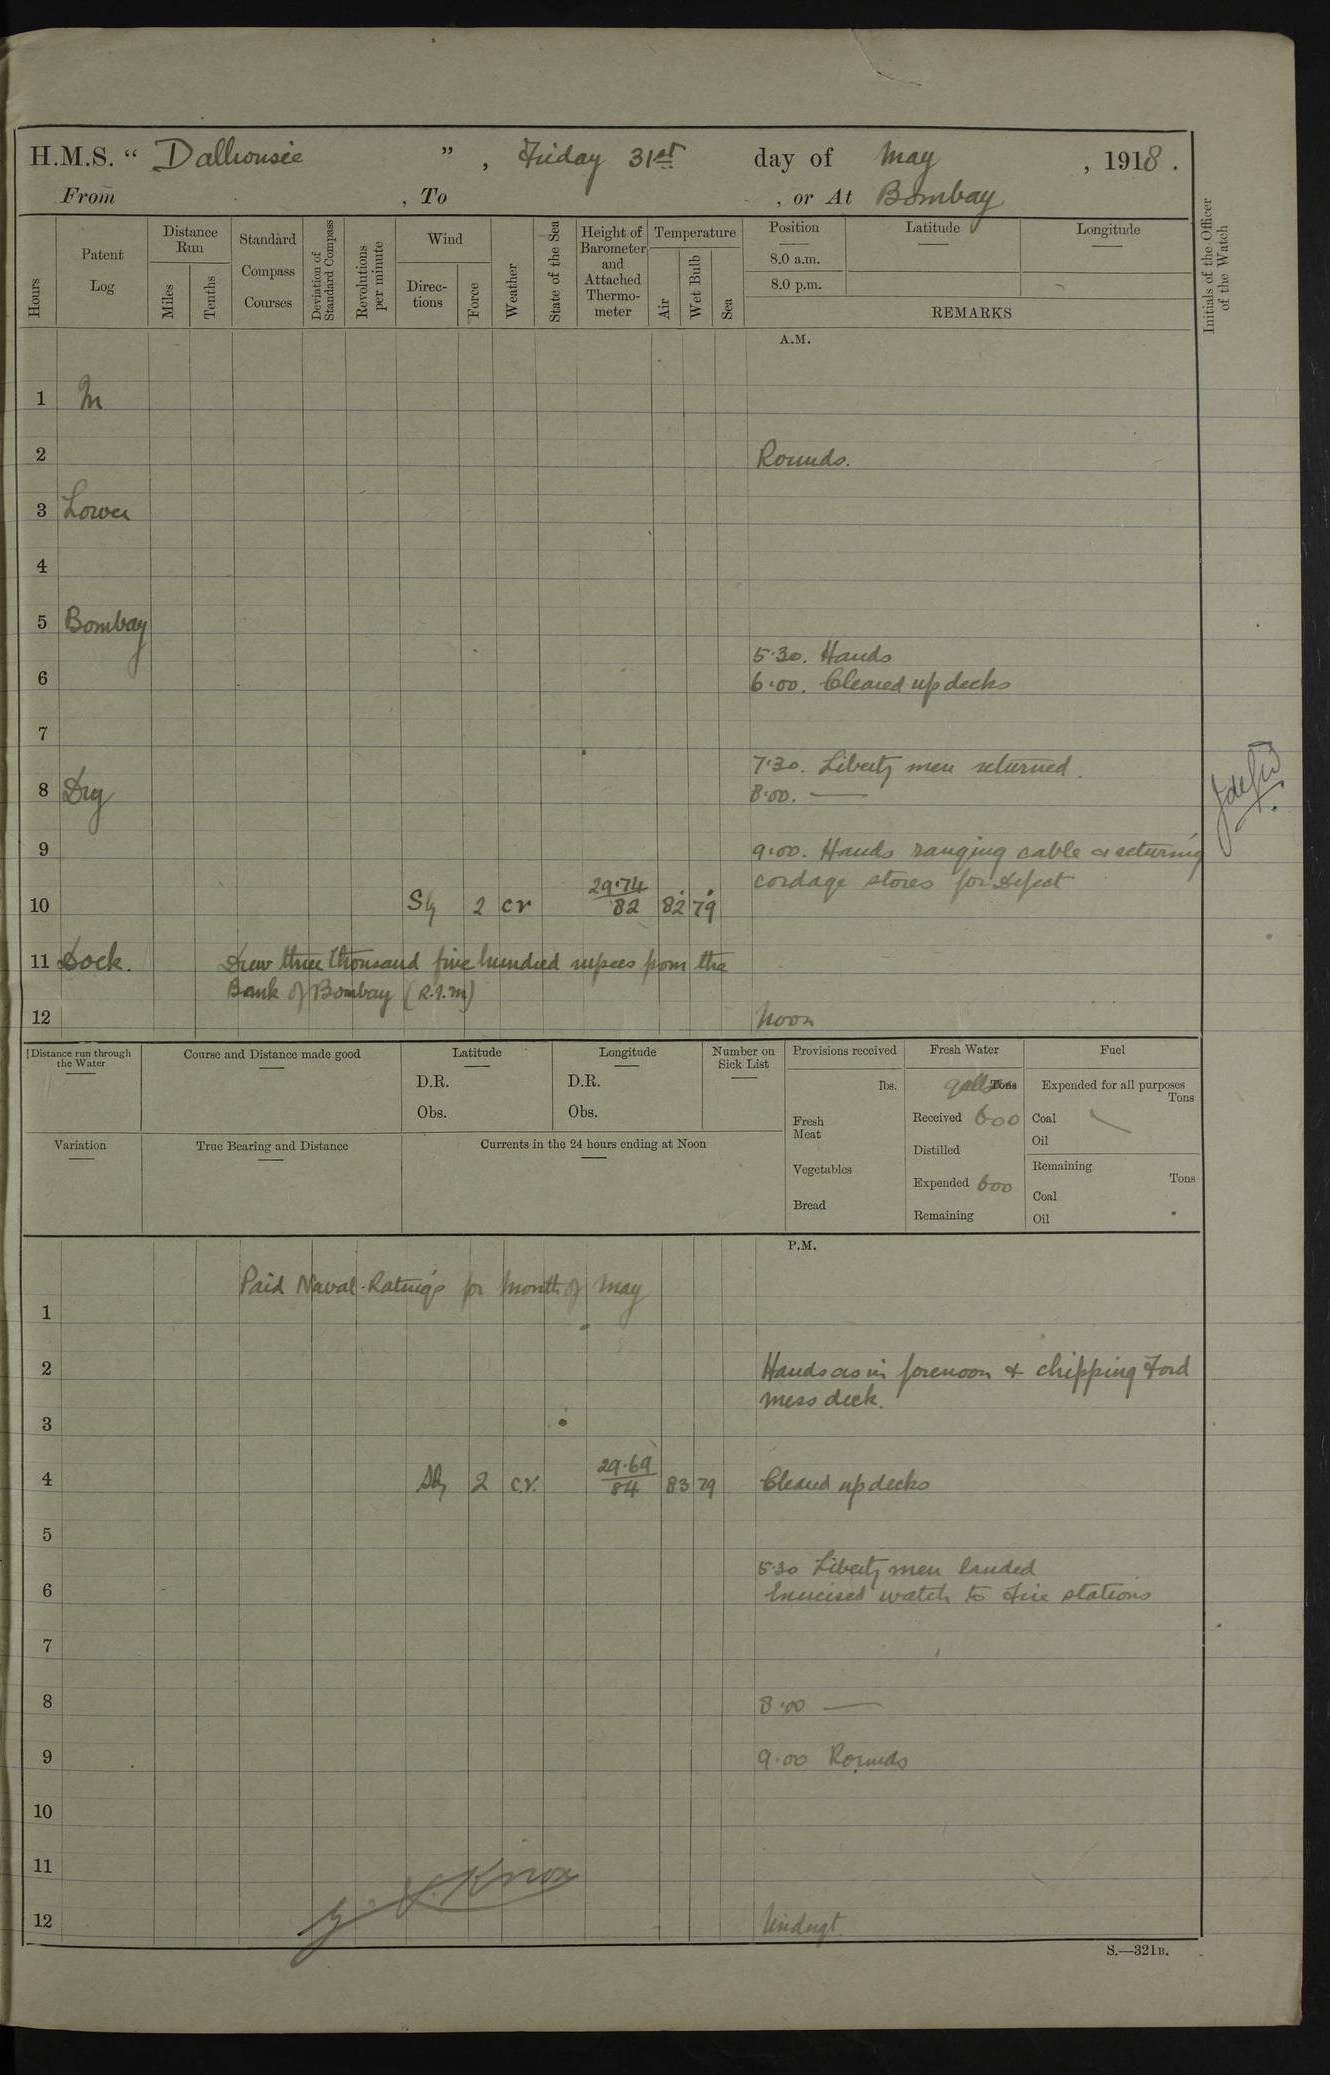 H.M.S. “ Dalhousie ” , Friday 31st day of May , 1918 .
From , To , or At Bombay
Hours
Patent Log
Distance Run
Miles
Tenths
Standard Compass Courses
Deviation of Standard Compass
Revolutions per minute
Wind
Direc-tions
Force
Weather
State of the Sea
Height of Barometer and Attached Thermo-meter
Temperature
Air
Wet Bulb
Sea
Position
8.0 a.m.
8.0 p.m.
Latitude
Longitude
REMARKS
Initials of the Officer of the Watch
A.M.
1 In
2 Rounds.
3 Lower
4
5 Bombay
5.30. Hands
6 6.00. Cleared up decks
7
7.30. Liberty men returned.
8 Dry 8.00. —
9 9.00. Hands ranging cable & returning
cordage stores for Defect
10 2 cr 29.74 / 82 82 79
11 Dock. Drew three thousand five hundred rupees from the
Bank of Bombay (R.I.M)
12 Noon
Distance run through the Water
Course and Distance made good
Latitude
D.R.
Obs.
Longitude
D.R.
Obs.
Number on Sick List
Provisions received
lbs.
Fresh Meat
Vegetables
Bread
Fresh Water
Tons
Received 600
Distilled
Expended 600
Remaining
Fuel
Expended for all purposes
Tons
Coal
Oil
Remaining
Tons
Coal
Oil
Variation
True Bearing and Distance
Currents in the 24 hours ending at Noon
P.M.
Paid Naval Ratings for Month of May
1
2 Hands as in forenoon & chipping Ford
mess deck.
3
4 2 c.r. 29.69 / 84 83 79 Cleared up decks
5
5.30 Liberty men landed
6 Exercised watch to Fire stations
7
8 8.00 —
9 9.00 Rounds
10
11
Knox
12 Midngt
S.—321B.